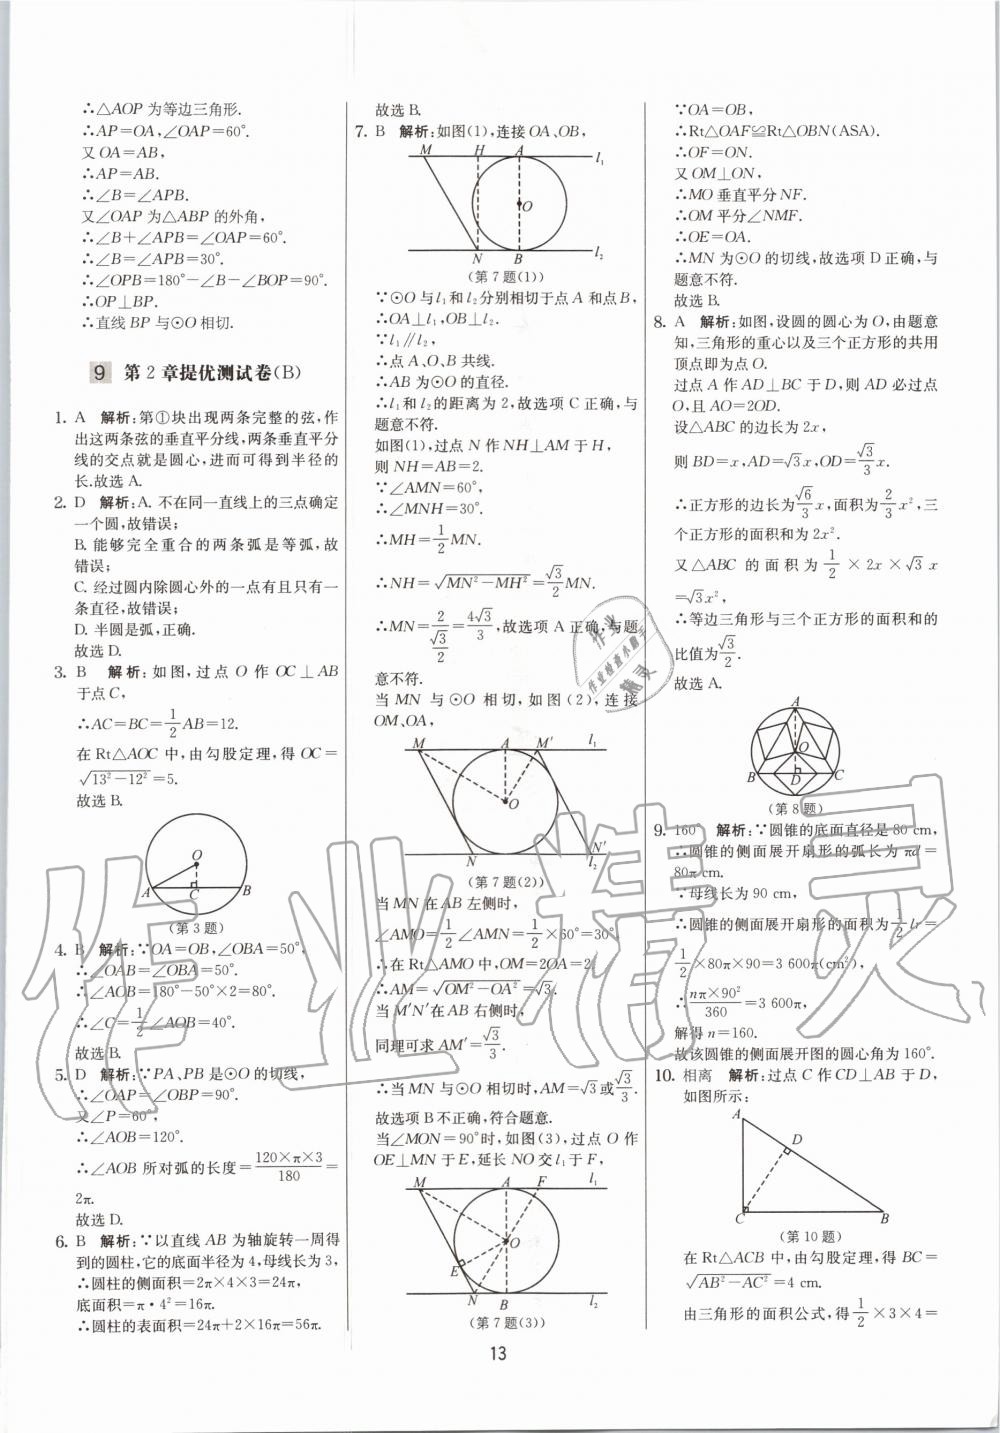 ∴△AOP 为等边三角形.
∴AP=OA,∠OAP=60°.
又 OA=AB,
∴AP=AB.
∴∠B=∠APB.
又∠OAP 为△ABP 的外角,
∴∠B+∠APB=∠OAP=60°.
∴∠B=∠APB=30°.
∴∠OPB=180°-∠B-∠BOP=90°.
∴OP⊥BP.
∴直线 BP 与⊙O 相切.
9 第 2 章提优测试卷(B)
1. A 解析:第①块出现两条完整的弦,作
出这两条弦的垂直平分线,两条垂直平分
线的交点就是圆心,进而可得到半径的
长.故选 A.
2. D 解析:A. 不在同一直线上的三点确定
一个圆,故错误;
B. 能够完全重合的两条弧是等弧,故
错误;
C. 经过圆内除圆心外的一点有且只有一
条直径,故错误;
D. 半圆是弧,正确.
故选 D.
3. B 解析:如图,过点 O 作 OC⊥AB
于点 C,
∴AC=BC=1/2AB=12.
在 Rt△AOC 中,由勾股定理,得 OC=
√(13²-12²)=5.
故选 B.
O
A C B
(第 3 题)
4. B 解析:∵OA=OB,∠OBA=50°,
∴∠OAB=∠OBA=50°.
∴∠AOB=180°-50°×2=80°.
∴∠C=1/2∠AOB=40°.
故选 B.
5. D 解析:∵PA、PB 是⊙O 的切线,
∴∠OAP=∠OBP=90°.
又∠P=60°,
∴∠AOB=120°.
∴∠AOB 所对弧的长度=(120×π×3)/180=
2π.
故选 D.
6. B 解析:∵以直线 AB 为轴旋转一周得
到的圆柱,它的底面半径为 4,母线长为 3,
∴圆柱的侧面积=2π×4×3=24π,
底面积=π·4²=16π.
∴圆柱的表面积=24π+2×16π=56π.
故选 B.
7. B 解析:如图(1),连接 OA、OB,
M H A l₁
O
N B l₂
(第 7 题(1))
∵⊙O 与 l₁ 和 l₂ 分别相切于点 A 和点 B,
∴OA⊥l₁,OB⊥l₂.
∵l₁∥l₂,
∴点 A、O、B 共线.
∴AB 为⊙O 的直径.
∴l₁ 和 l₂ 的距离为 2,故选项 C 正确,与
题意不符.
如图(1),过点 N 作 NH⊥AM 于 H,
则 NH=AB=2.
∵∠AMN=60°,
∴∠MNH=30°.
∴MH=1/2MN.
∴NH=√(MN²-MH²)=√3/2MN.
∴MN=2/(√3/2)=4√3/3,故选项 A 正确,与题
意不符.
当 MN 与⊙O 相切,如图(2),连接
OM、OA,
M A M′ l₁
O
N N′ l₂
(第 7 题(2))
当 MN 在 AB 左侧时,
∠AMO=1/2∠AMN=1/2×60°=30°
∴在 Rt△AMO 中,OM=2OA=2.
∴AM=√(OM²-OA²)=√3.
当 M′N′在 AB 右侧时,
同理可求 AM′=√3/3.
∴当 MN 与⊙O 相切时,AM=√3或√3/3.
故选项 B 不正确,符合题意.
当∠MON=90°时,如图(3),过点 O 作
OE⊥MN 于 E,延长 NO 交 l₁ 于 F,
M A F l₁
O
E
N B l₂
(第 7 题(3))
∵OA=OB,
∴Rt△OAF≌Rt△OBN(ASA).
∴OF=ON.
又 OM⊥ON,
∴MO 垂直平分 NF.
∴OM 平分∠NMF.
∴OE=OA.
∴MN 为⊙O 的切线,故选项 D 正确,与
题意不符.
故选 B.
8. A 解析:如图,设圆的圆心为 O,由题意
知,三角形的重心以及三个正方形的共用
顶点即为点 O.
过点 A 作 AD⊥BC 于 D,则 AD 必过点
O,且 AO=2OD.
设△ABC 的边长为 2x,
则 BD=x,AD=√3x,OD=√3/3x.
∴正方形的边长为√6/3x,面积为2/3x²,三
个正方形的面积和为 2x².
又△ABC 的面积为1/2×2x×√3x
=√3x²,
∴等边三角形与三个正方形的面积和的
比值为√3/2.
故选 A.
A
O
B D C
(第 8 题)
9. 160° 解析:∵圆锥的底面直径是 80 cm,
∴圆锥的侧面展开扇形的弧长为 πd=
80π cm.
∵母线长为 90 cm,
∴圆锥的侧面展开扇形的面积为1/2lr=
1/2×80π×90=3 600π(cm²),
∴(nπ×90²)/360=3 600π,
解得 n=160.
故该圆锥的侧面展开图的圆心角为 160°.
10. 相离 解析:过点 C 作 CD⊥AB 于 D,
如图所示:
A
D
C B
(第 10 题)
在 Rt△ACB 中,由勾股定理,得 BC=
√(AB²-AC²)=4 cm.
由三角形的面积公式,得1/2×3×4=
13
作业精灵
作业
作业检查小助手
精灵